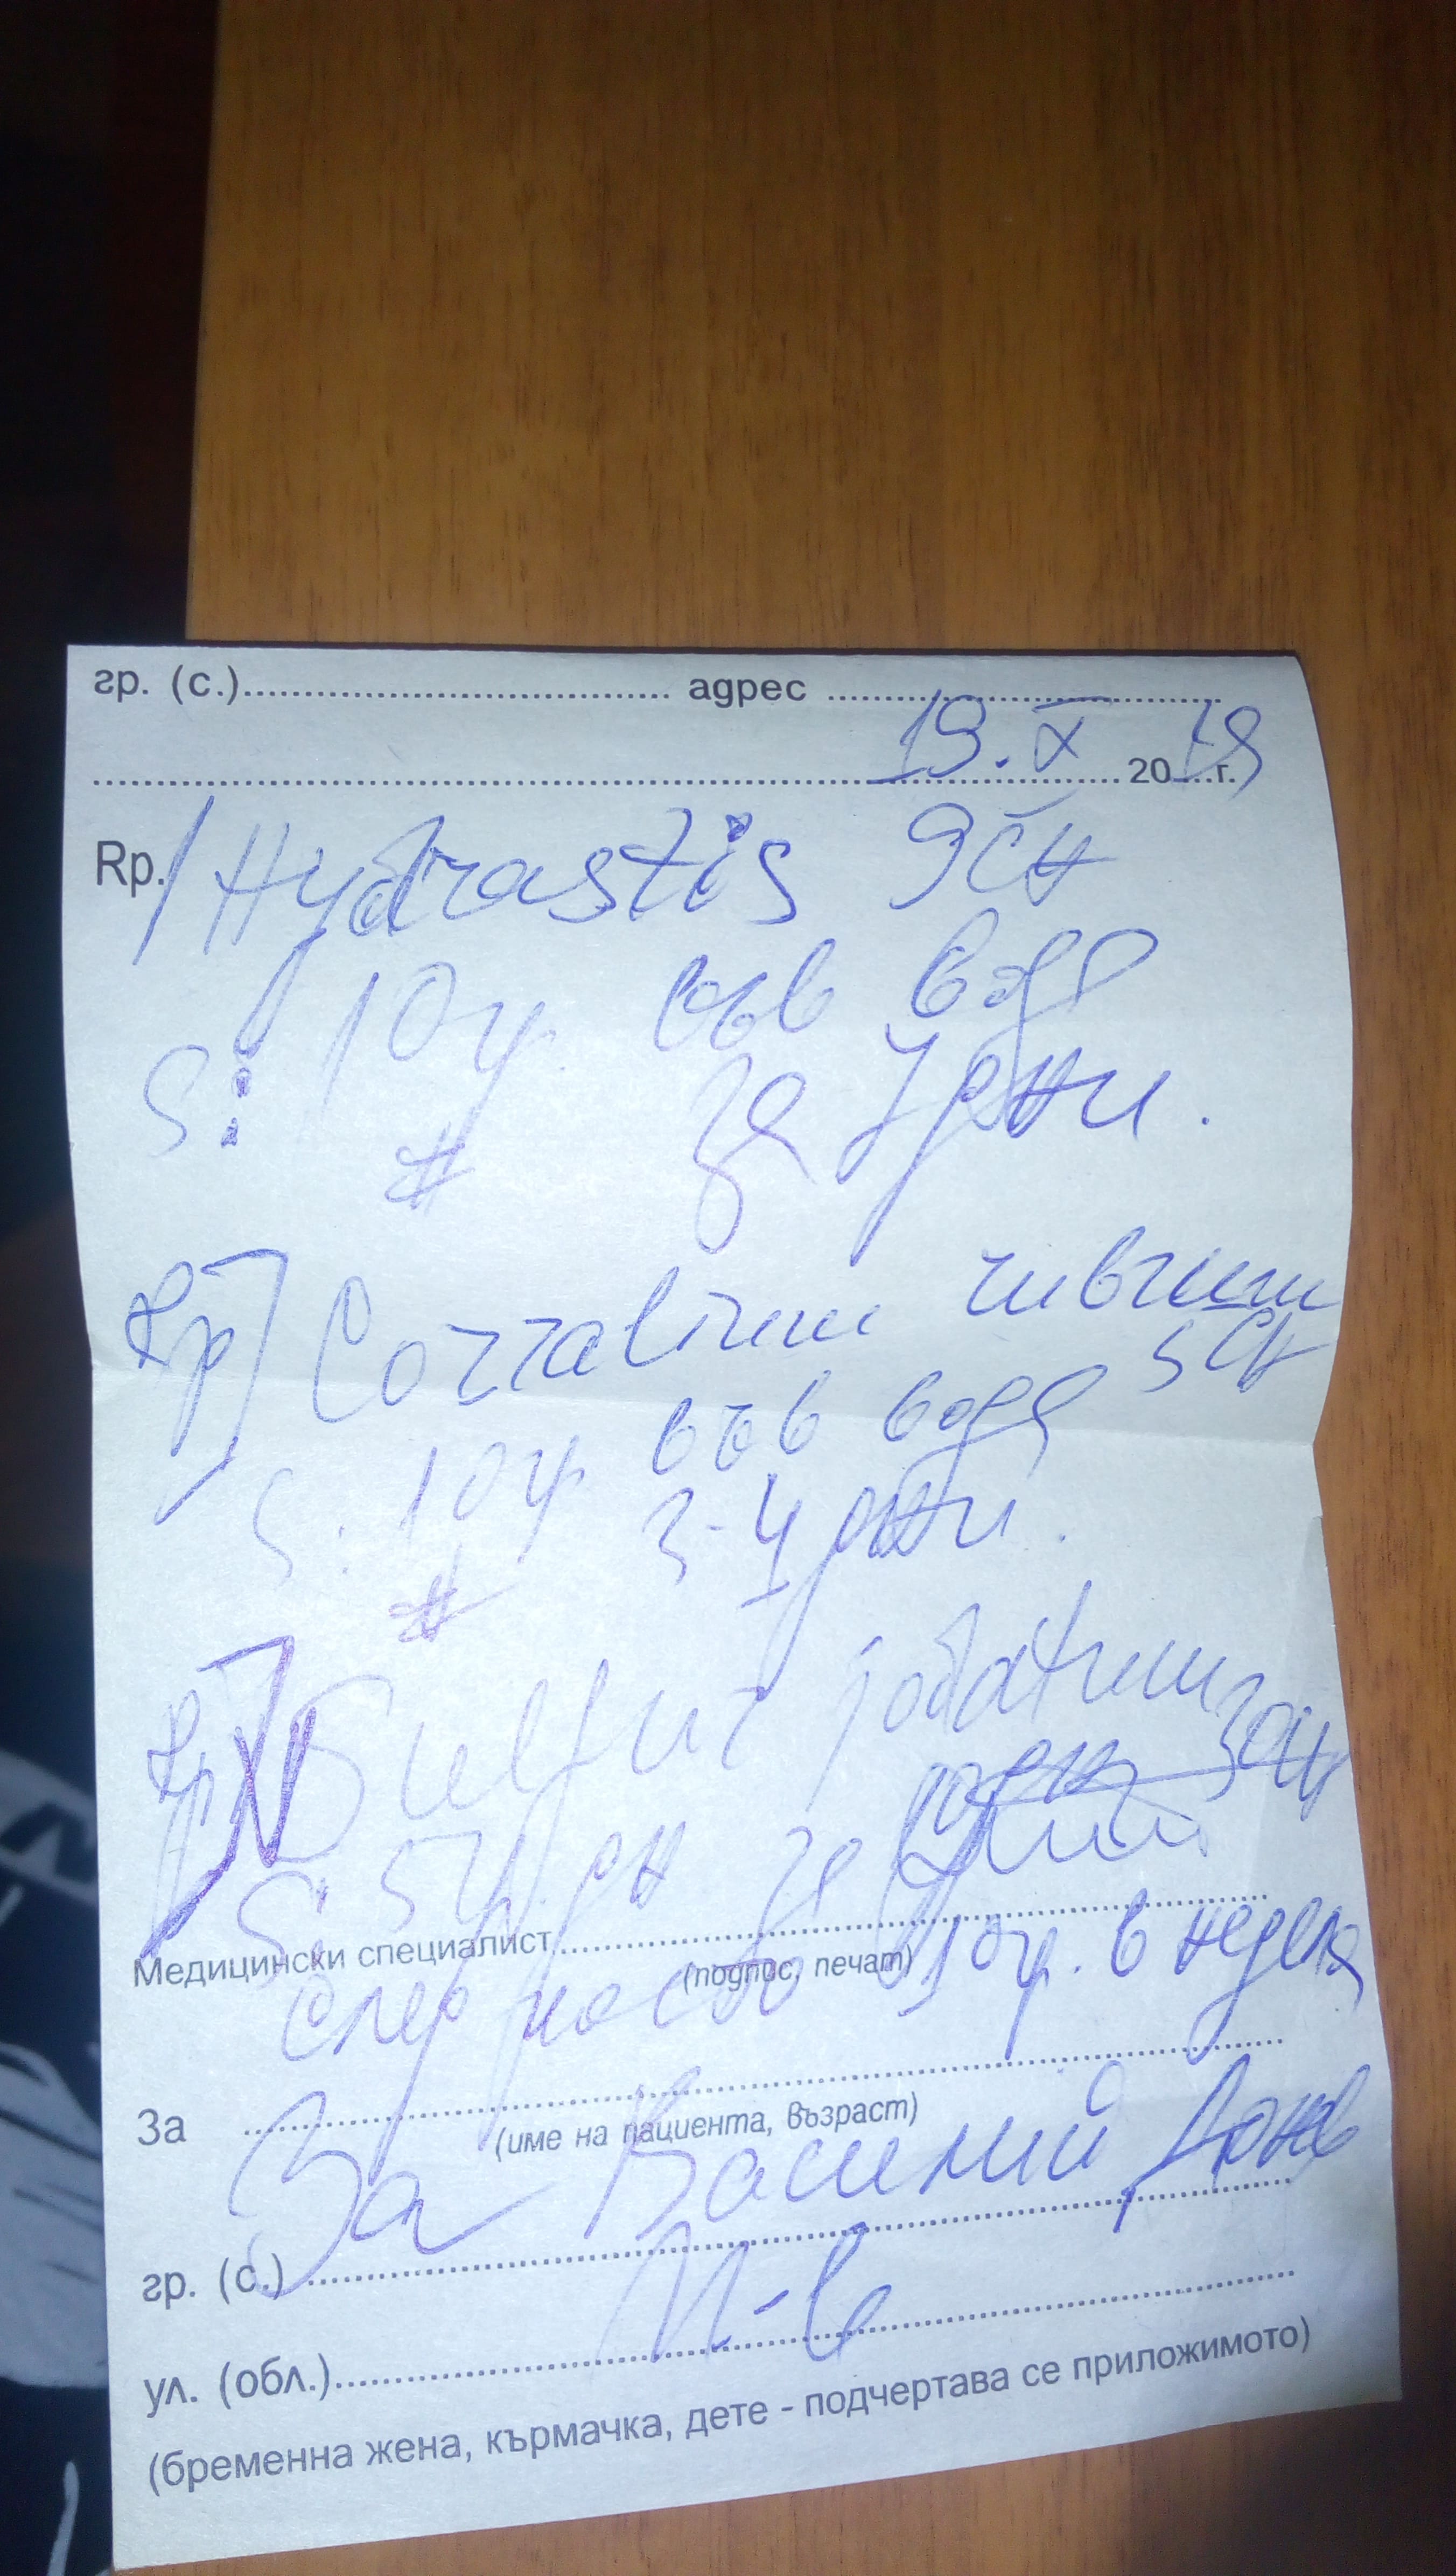 гр. (с.) адрес
19. X 2019 г.
Rp. / Hydrastis 9 CH
S: 10 ч. във вода
за 7 дни.
#
Rp / Corralium rubrum
5 CH
S: 10 ч. във вода
3-4 дни.
#
Rp / Sulfur jodatum
30 CH
S: 5 ч. за
Медицински специалист
(подпис, печат)
след това 10 ч. в неделя
За
(име на пациента, възраст)
За Василий
гр. (с.)
ул. (обл.)
(бременна жена, кърмачка, дете - подчертава се приложимото)